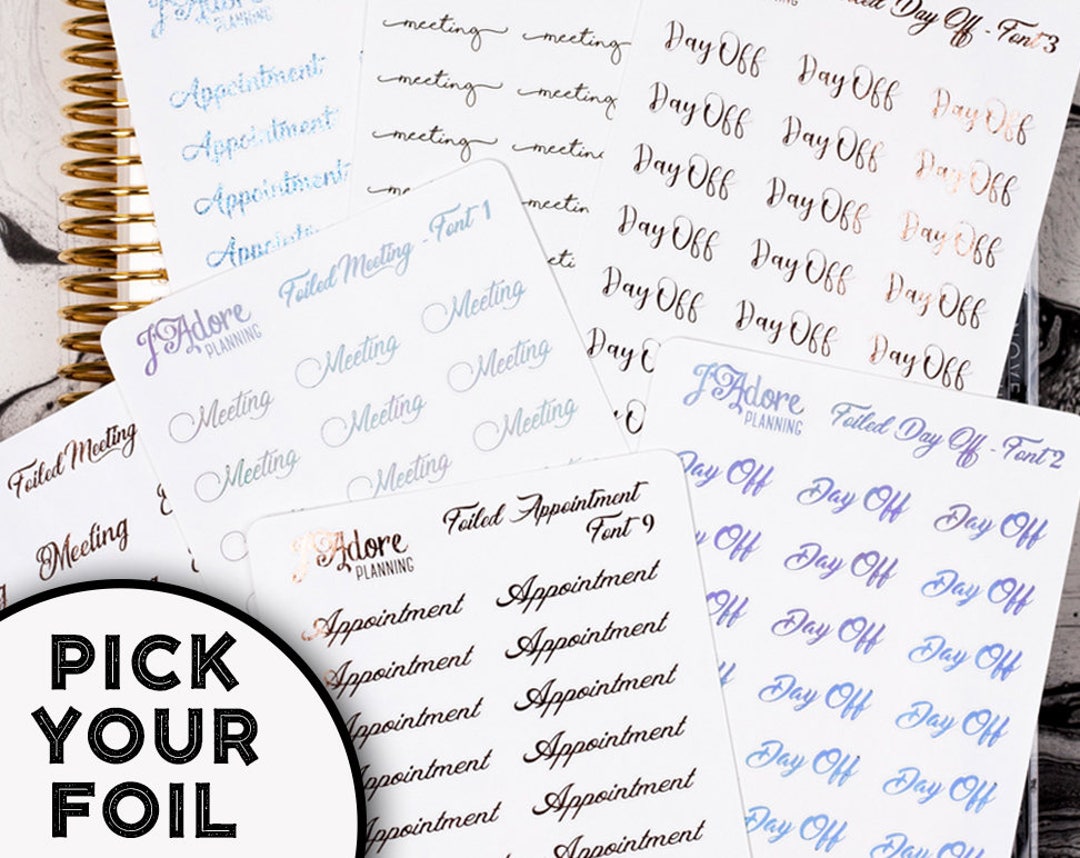 J'Adore
PLANNING
Appointment
Appointment
Appointment
meeting meeting
meeting meeting
meeting
Day Off - Font 3
Day Off Day Off Day Off
Day Off Day Off Day Off
Day Off Day Off Day Off
Day Off Day Off Day Off
Day Off Day Off Day Off
Day Off
J'Adore
PLANNING
Foiled Meeting - Font 1
Meeting Meeting Meeting
Meeting Meeting Meeting
Meeting Meeting
Foiled Meeting
Meeting
J'Adore
PLANNING
Foiled Day Off - Font 2
Day Off Day Off Day Off
Off Day Off Day Off
Off Day Off Day Off
Day Off Day Off
Day Off Day Off
Day Off
J'Adore
PLANNING
Foiled Appointment
Font 9
Appointment Appointment
Appointment Appointment
Appointment Appointment
Appointment Appointment
Appointment Appointment
Appointment
PICK
YOUR
FOIL